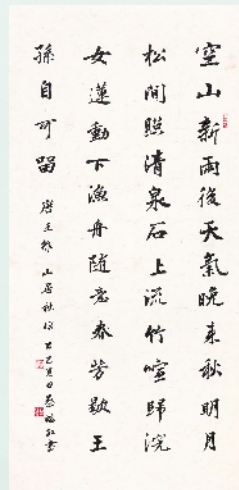 空山新雨後天氣晚來秋明月
松間照清泉石上流竹喧歸浣
女蓮動下漁舟隨意春芳歇王
孫自可留
唐王維山居秋